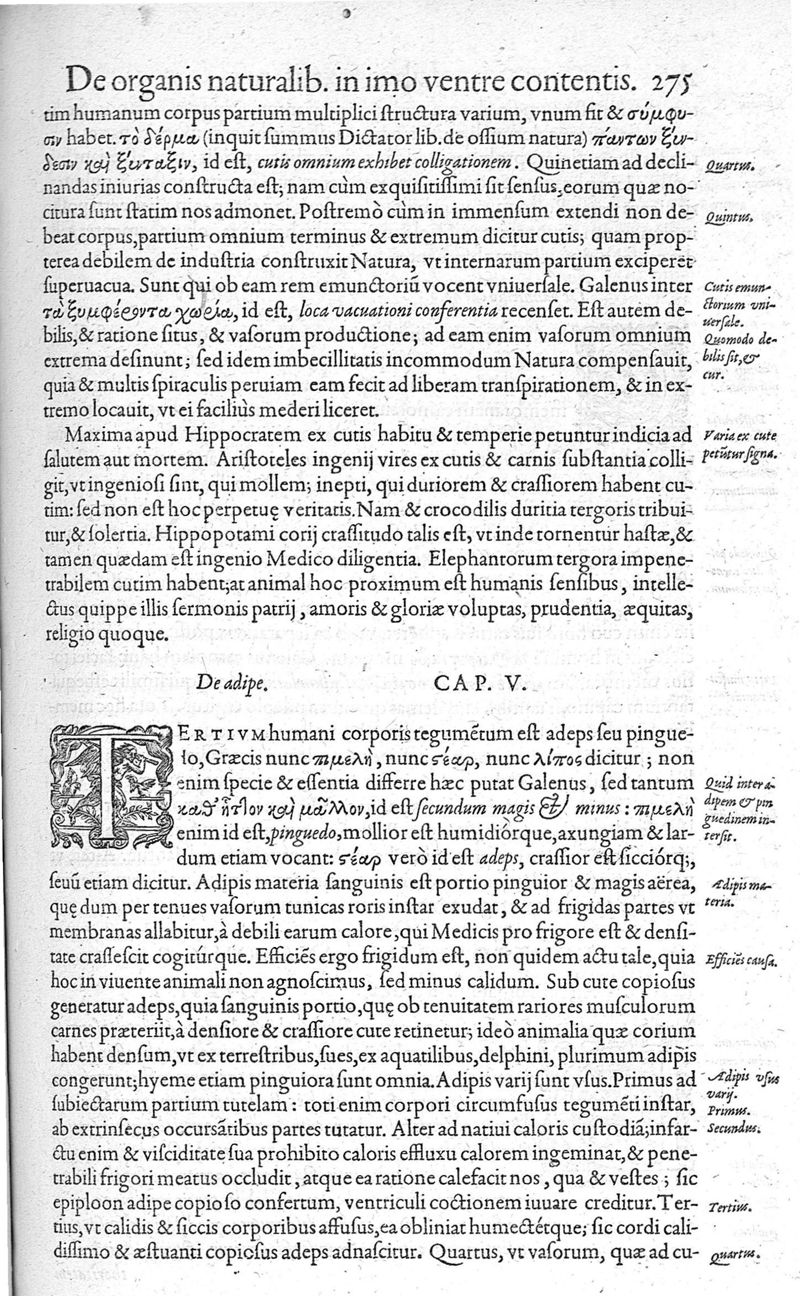 De organis naturalib. in imo ventre contentis. 275
tim humanum corpus partium multiplici structura varium, vnum fit & σύμφυ-
σιν habet. τὸ δέρμα (inquit summus Dictator lib. de ossium natura) πάντων ξύν-
δεσιν καὶ ξύνταξιν, id est, cutis omnium exhibet colligationem. Quinetiam ad decli-
Quartus.
nandas iniurias constructa est; nam cùm exquisitissimi sit sensus, eorum quæ no-
citura sunt statim nos admonet. Postremò cùm in immensum extendi non de-
Quintus.
beat corpus, partium omnium terminus & extremum dicitur cutis; quam prop-
terea debilem de industria construxit Natura, vt internarum partium exciperet
superuacua. Sunt qui ob eam rem emunctoriũ vocent vniuersale. Galenus inter
Cutis emun-
τὰ ξυμφέροντα χωρία, id est, loca vacuationi conferentia recenset. Est autem de-
ctorium vni-
uersale.
bilis, & ratione situs, & vasorum productione; ad eam enim vasorum omnium
Quomodo de-
extrema desinunt; sed idem imbecillitatis incommodum Natura compensauit,
bilis sit, &
cur.
quia & multis spiraculis peruiam eam fecit ad liberam transpirationem, & in ex-
tremo locauit, vt ei faciliùs mederi liceret.
Maxima apud Hippocratem ex cutis habitu & temperie petuntur indicia ad
Varia ex cute
salutem aut mortem. Aristoteles ingenij vires ex cutis & carnis substantia colli-
petũtur signa.
git, vt ingeniosi sint, qui mollem; inepti, qui duriorem & crassiorem habent cu-
tim: sed non est hoc perpetuę veritatis. Nam & crocodilis duritia tergoris tribui-
tur, & solertia. Hippopotami corij crassitudo talis est, vt inde tornentur hastæ, &
tamen quædam est ingenio Medico diligentia. Elephantorum tergora impene-
trabilem cutim habent; at animal hoc proximum est humanis sensibus, intelle-
ctus quippe illis sermonis patrij, amoris & gloriæ voluptas, prudentia, æquitas,
religio quoque.
De adipe. CAP. V.
TERTIVM humani corporis tegumẽtum est adeps seu pingue-
do, Græcis nunc πιμελὴ, nunc στέαρ, nunc λίπος dicitur; non
enim specie & essentia differre hæc putat Galenus, sed tantum
Quid inter a-
καθ' ἧττον καὶ μᾶλλον, id est secundum magis & minus: πιμελὴ
dipem & pin
guedinem in-
enim id est, pinguedo, mollior est humidiórque, axungiam & lar-
tersit.
dum etiam vocant: στέαρ verò id est adeps, crassior est sicciórq;,
seuũ etiam dicitur. Adipis materia sanguinis est portio pinguior & magis aërea,
Adipis ma-
quę dum per tenues vasorum tunicas roris instar exudat, & ad frigidas partes vt
teria.
membranas allabitur, à debili earum calore, qui Medicis pro frigore est & densi-
tate crassescit cogitúrque. Efficiẽs ergo frigidum est, non quidem actu tale, quia
Efficiẽs causa.
hoc in viuente animali non agnoscimus, sed minus calidum. Sub cute copiosus
generatur adeps, quia sanguinis portio, quę ob tenuitatem rariores musculorum
carnes præteriit, à densiore & crassiore cute retinetur; ideò animalia quæ corium
habent densum, vt ex terrestribus, sues, ex aquatilibus, delphini, plurimum adipis
congerunt; hyeme etiam pinguiora sunt omnia. Adipis varij sunt vsus. Primus ad
Adipis vsus
varij.
subiectarum partium tutelam: toti enim corpori circumfusus tegumẽti instar,
Primus.
ab extrinsecus occursãtibus partes tutatur. Alter ad natiui caloris custodiã; infar-
Secundus.
ctu enim & visciditate sua prohibito caloris effluxu calorem ingeminat, & pene-
trabili frigori meatus occludit, atque ea ratione calefacit nos, qua & vestes; sic
epiploon adipe copioso confertum, ventriculi coctionem iuuare creditur. Ter-
Tertius.
tius, vt calidis & siccis corporibus affusus, ea obliniat humectétque; sic cordi cali-
dissimo & æstuanti copiosus adeps adnascitur. Quartus, vt vasorum, quæ ad cu-
Quartus.